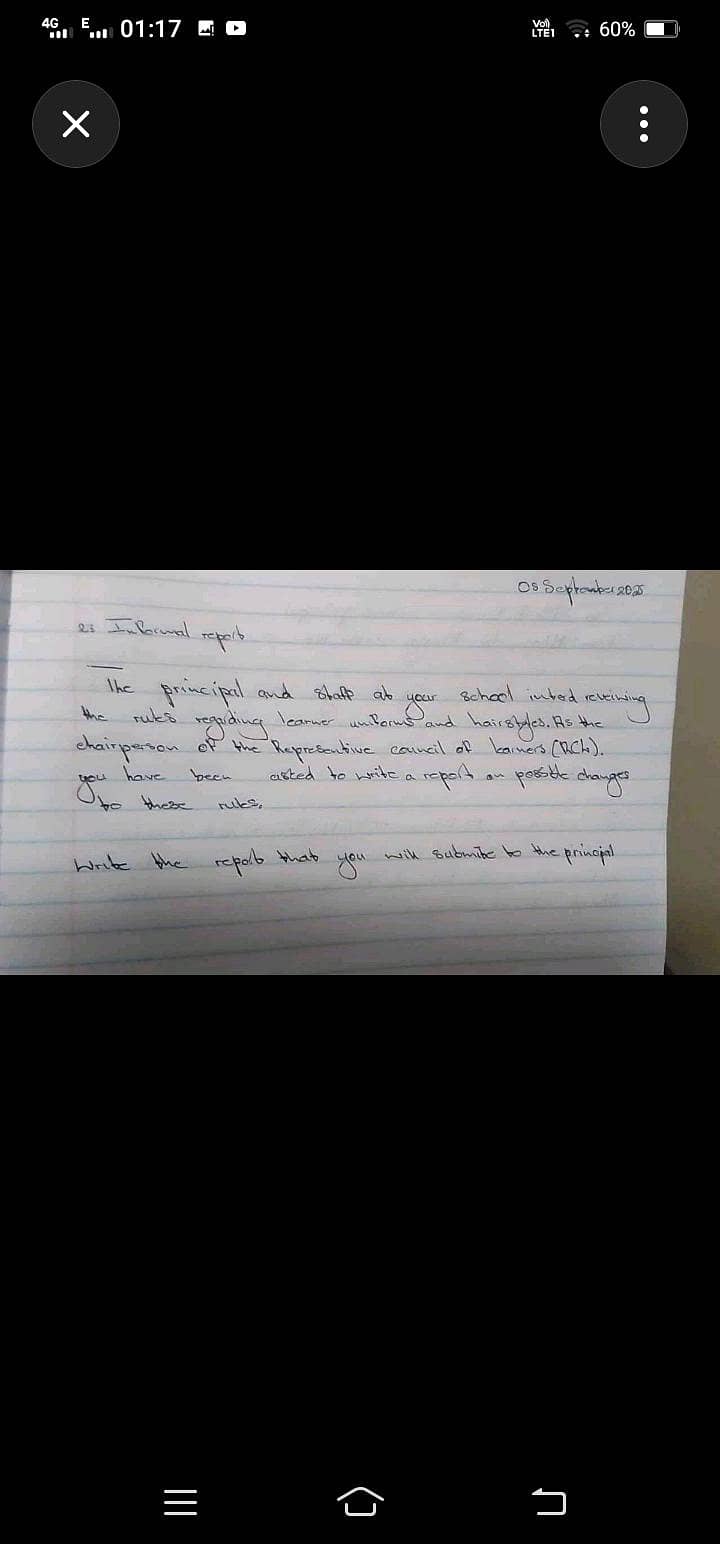 4G E 01:17 Vo) LTE1 60%
05 September 2025
2.3 Informal report
The principal and staff at your school inted reveiwing
the rules regarding learner uniforms and hairstyles. As the
chairperson of the Representive council of learners (RCL).
you have been asked to write a report on possible changes
to these rules.
Write the report that you will submite to the principal